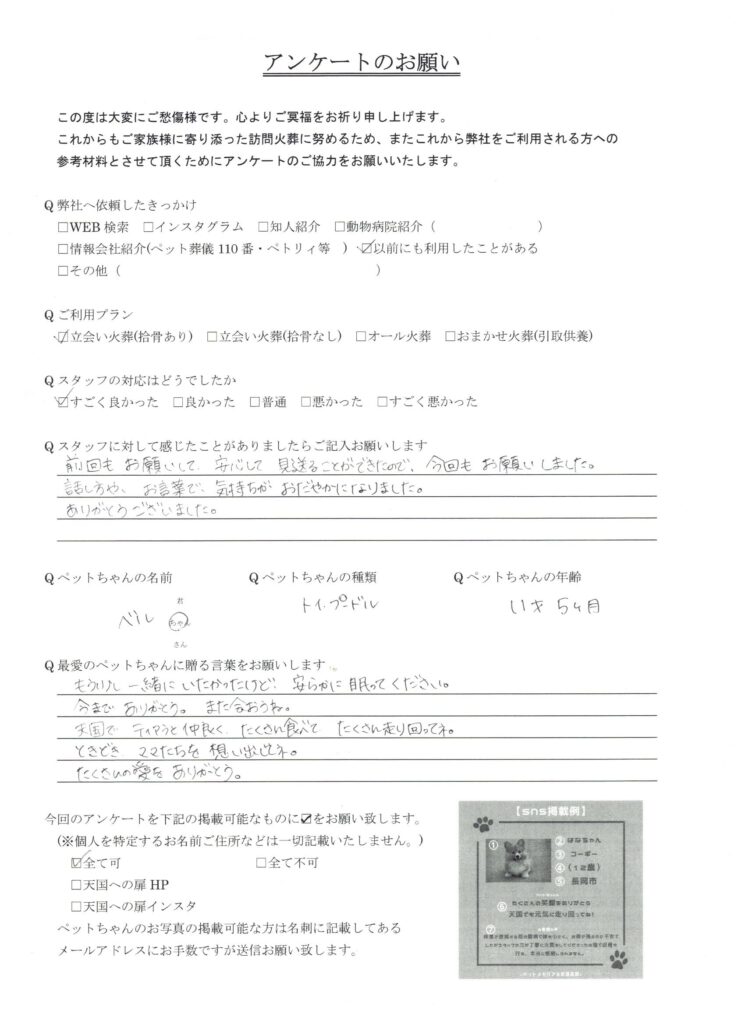 アンケートのお願い
この度は大変にご愁傷様です。心よりご冥福をお祈り申し上げます。
これからもご家族様に寄り添った訪問火葬に努めるため、またこれから弊社をご利用される方への
参考材料とさせて頂くためにアンケートのご協力をお願いいたします。
Q 弊社へ依頼したきっかけ
□WEB 検索 □インスタグラム □知人紹介 □動物病院紹介（ ）
□情報会社紹介(ペット葬儀 110 番・ペトリィ等 ) ☑以前にも利用したことがある
□その他（ ）
Q ご利用プラン
☑立会い火葬(拾骨あり) □立会い火葬(拾骨なし) □オール火葬 □おまかせ火葬(引取供養)
Q スタッフの対応はどうでしたか
☑すごく良かった □良かった □普通 □悪かった □すごく悪かった
Q スタッフに対して感じたことがありましたらご記入お願いします
前回も お願いして、安心して 見送ることができたので、今回も お願いしました。
話し方や、お言葉で、気持ちが おだやかになりました。
ありがとうございました。
Q ペットちゃんの名前 Q ペットちゃんの種類 Q ペットちゃんの年齢
君
ベル ちゃん トイ・プードル 5ヶ月
さん
Q 最愛のペットちゃんに贈る言葉をお願いします
一緒に いたかったけど、安らかに 眠ってください。
今まで ありがとう。また会おうね。
天国で と仲良く、たくさん食べて たくさん走り回ってネ。
ときどき ママたちを 想い出してネ。
たくさんの愛を ありがとう。
今回のアンケートを下記の掲載可能なものに☑をお願い致します。
(※個人を特定するお名前ご住所などは一切記載いたしません。)
☑全て可 □全て不可
□天国への扉 HP
□天国への扉インスタ
ペットちゃんのお写真の掲載可能な方は名刺に記載してある
メールアドレスにお手数ですが送信お願い致します。
【sns掲載例】
① ② はなちゃん
③ コーギー
④ （12歳）
⑤ 長岡市
⑥ たくさんの笑顔をありがとう
天国でも元気に走り回ってね！
⑦